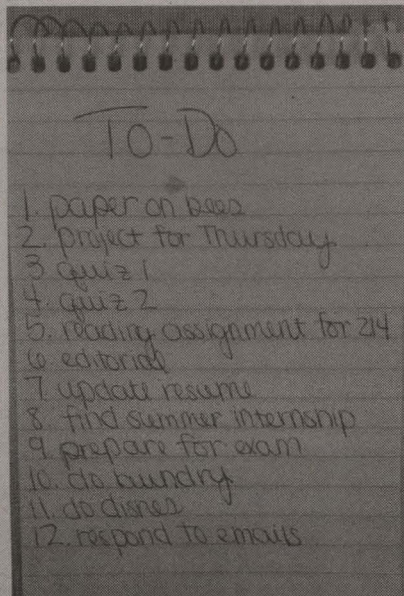 To-Do
1. paper on bees
2. project for Thursday
3. quiz 1
4. quiz 2
5. reading assignment for 214
6. editorial
7. update resume
8. find summer internship
9. prepare for exam
10. do laundry
11. do dishes
12. respond to emails